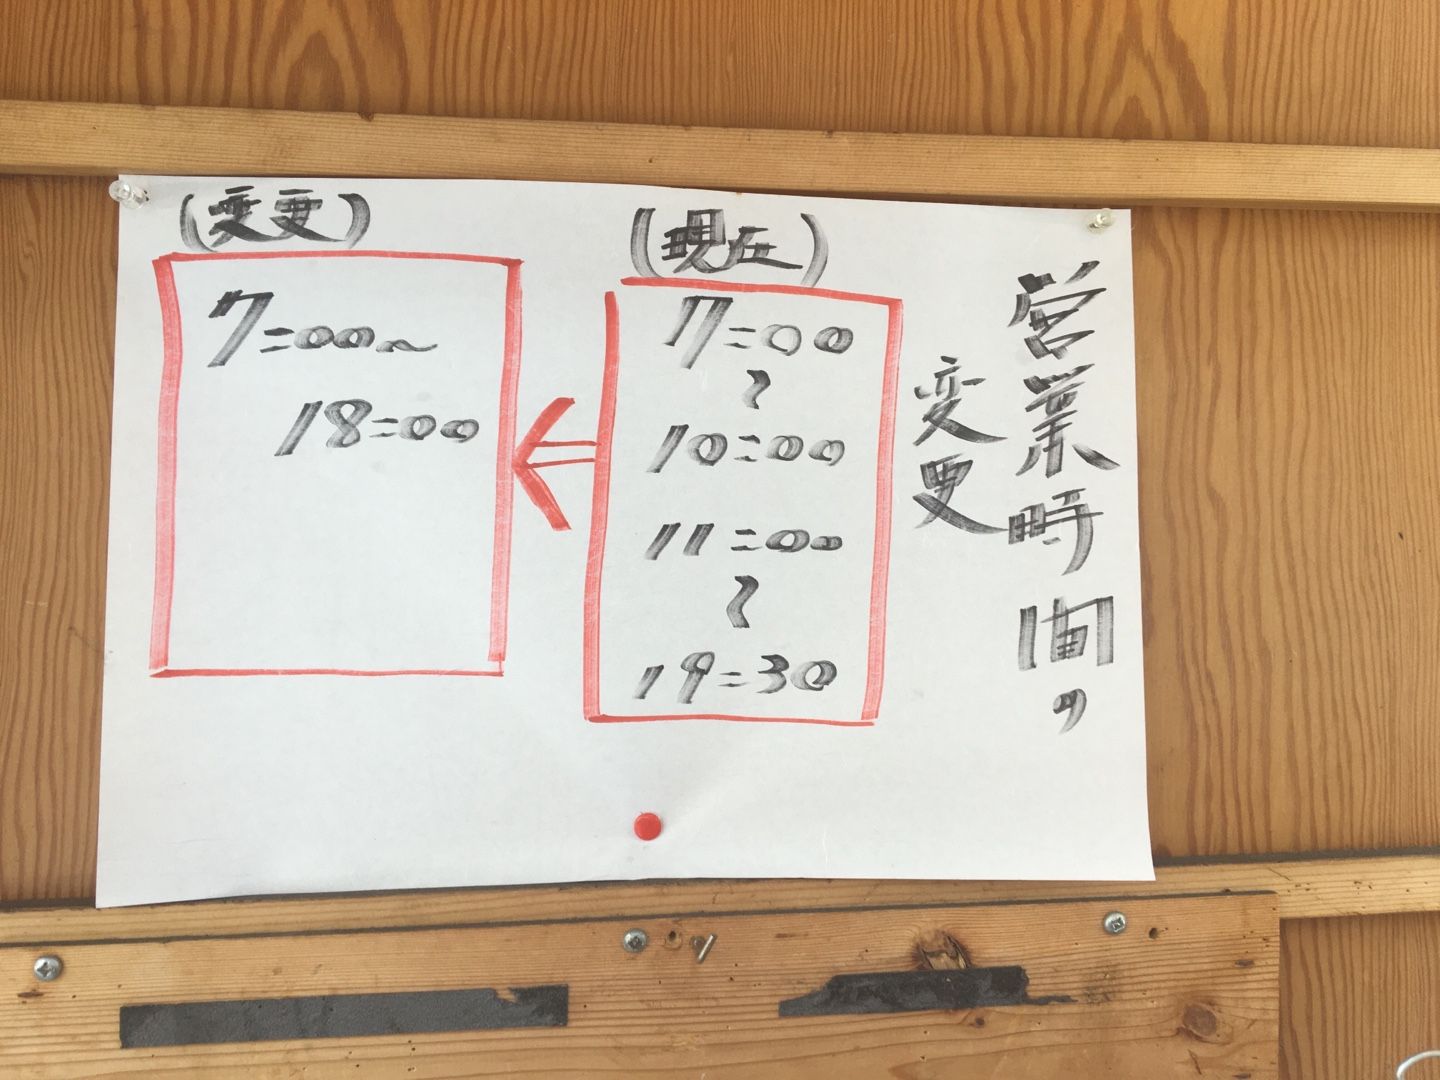 営業時間の
変更
(現在)
7:00
〜
10:00
11:00
〜
19:30
(変更)
7:00〜
18:00